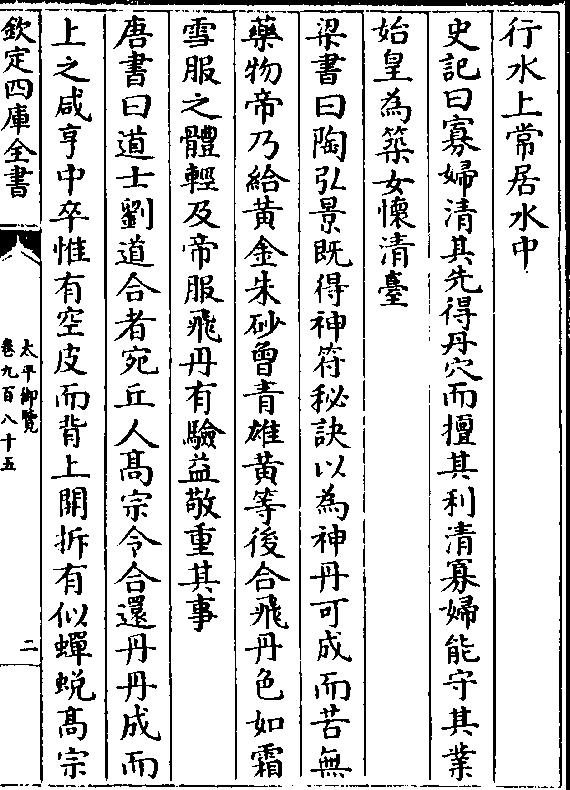 行水上常居水中
史記曰寡婦清其先得丹穴而擅其利清寡婦能守其業
始皇為築女懷清臺
梁書曰陶弘景既得神符秘訣以為神丹可成而苦無
藥物帝乃給黃金朱砂曾青雄黃等後合飛丹色如霜
雪服之體輕及帝服飛丹有驗益敬重其事
唐書曰道士劉道合者宛丘人髙宗令合還丹丹成而
上之咸亨中卒惟有空皮而背上開拆有似蟬蛻髙宗
欽定四庫全書
太平御覽
卷九百八十五
二